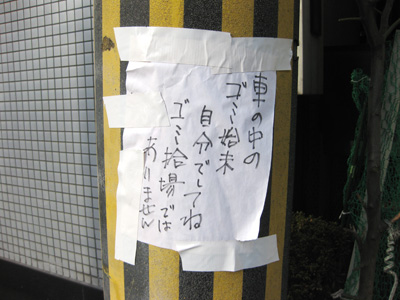 車の中の
ゴミ始末
自分でしてね
ゴミ捨場では
ありません